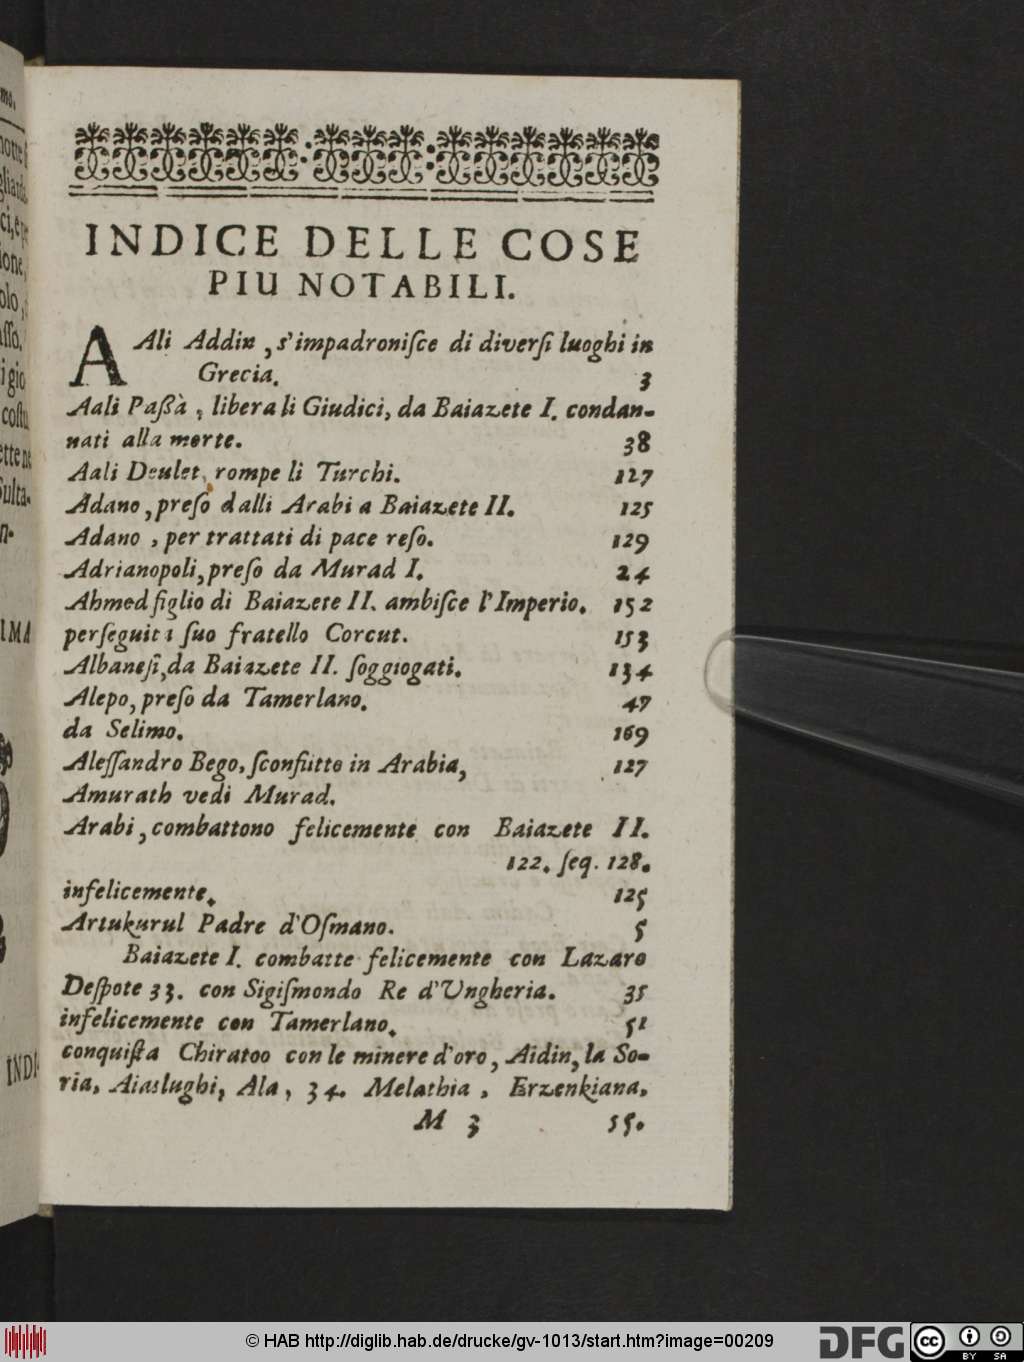 INDICE DELLE COSE
PIU NOTABILI.
AAli Addin, s'impadroniſce di diverſi luoghi in
Grecia. 3
Aali Paßà, libera li Giudici, da Baiazete I. condan-
nati alla morte. 38
Aali Deulet, rompe li Turchi. 127
Adano, preſo dalli Arabi a Baiazete II. 125
Adano, per trattati di pace reſo. 129
Adrianopoli, preſo da Murad I. 24
Ahmed figlio di Baiazete II. ambiſce l'Imperio. 152
perſeguita ſuo fratello Corcut. 153
Albaneſi, da Baiazete II. ſoggiogati. 134
Alepo, preſo da Tamerlano. 47
da Selimo. 169
Aleſſandro Bego, ſconfitto in Arabia, 127
Amurath vedi Murad.
Arabi, combattono felicemente con Baiazete II.
122. ſeq. 128.
infelicemente. 125
Artukurul Padre d'Oſmano. 5
Baiazete I. combatte felicemente con Lazaro
Deſpote 33. con Sigiſmondo Re d'Ungheria. 35
infelicemente con Tamerlano. 51
conquiſta Chiratoo con le minere d'oro, Aidin, la So-
ria, Aiaslughi, Ala, 34. Melathia, Erzenkiana,
M 3 55.
mo.
notte
ci, e pe
ione,
olo,
aſſo.
i gio
coſtu
ette ne
Sulta-
n-
IMA
INDI-
© HAB http://diglib.hab.de/drucke/gv-1013/start.htm?image=00209
DFG
cc
BY SA